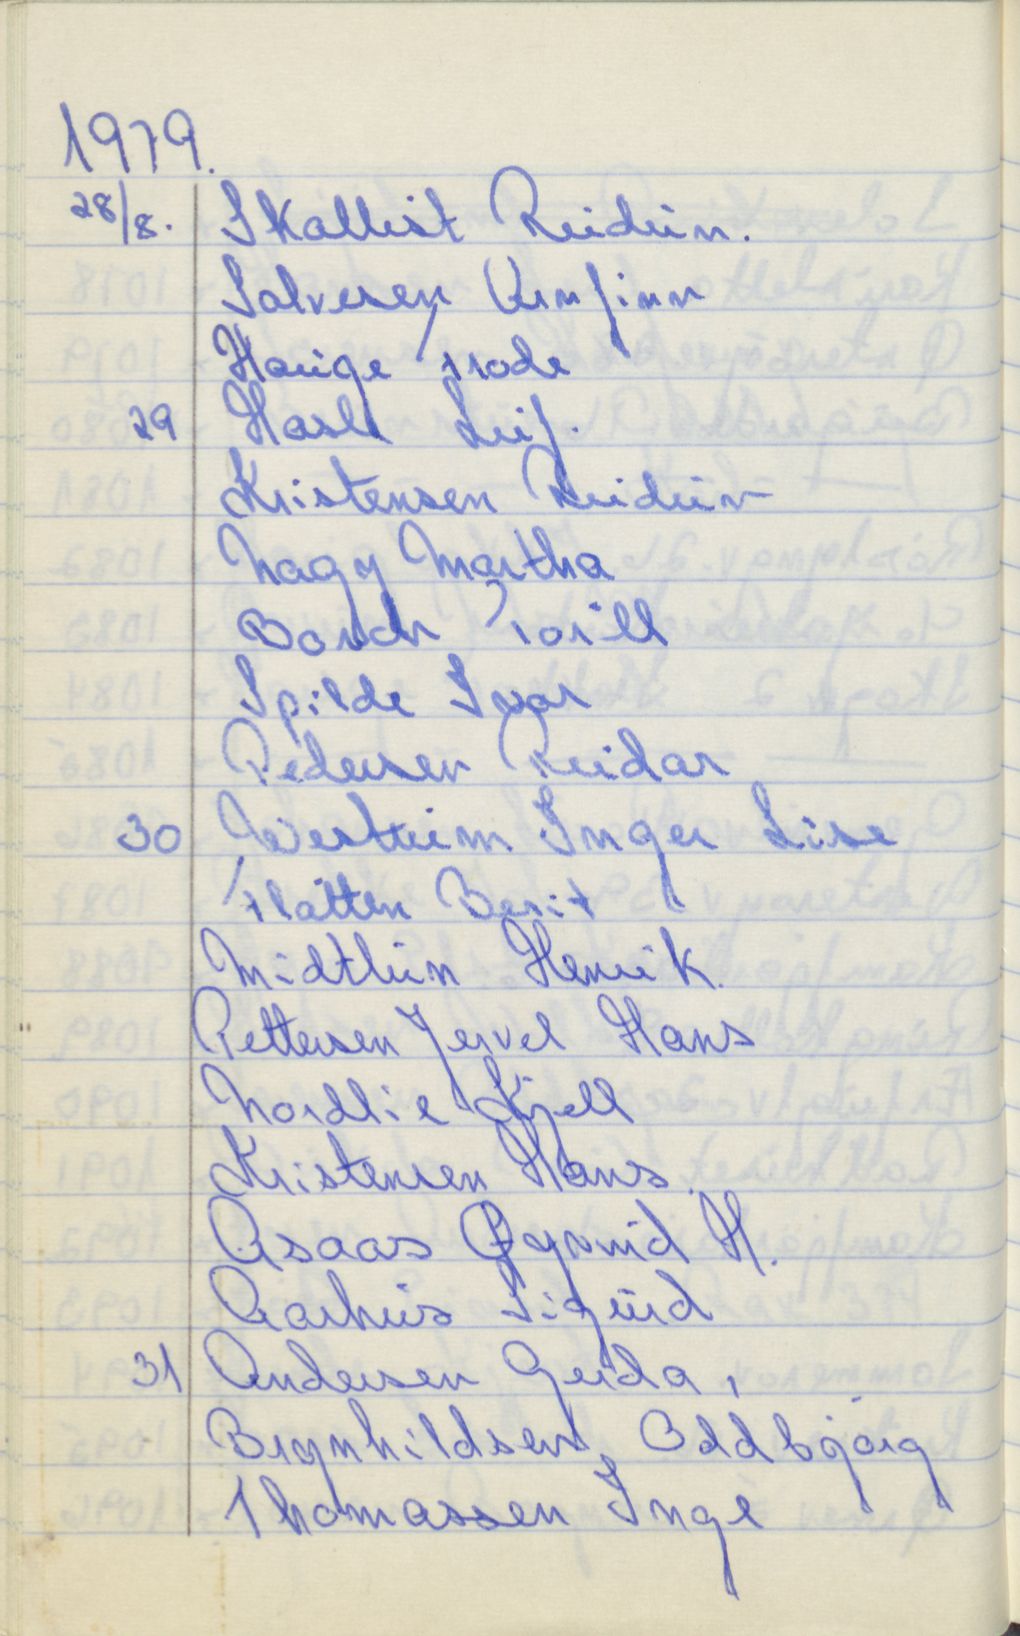 1979.
28/8. Skallist Reidun.
Salvesen Arnfinn
Hauge Frode
29 Hasle Leif.
Kristensen Reidun
Nagy Martha
Borch Torill
Spilde Ivar
Pedersen Reidar
30 Westreim Inger Lise
Flåtten Berit
Midtlien Henrik.
Pettersen Jervel Hans
Nordlie Kjell
Kristensen Hans.
Asaas Øyvind H.
Aarhus Sigurd
31 Andersen Gerda,
Brynhildsen, Oddbjørg
Thomassen Inge